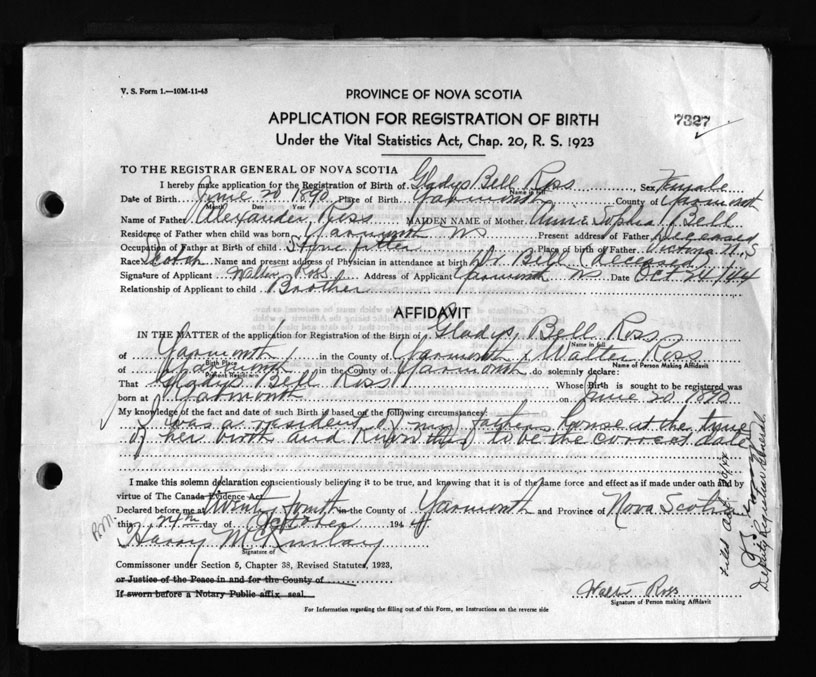 V. S. Form 1.—10M-11-43
PROVINCE OF NOVA SCOTIA
APPLICATION FOR REGISTRATION OF BIRTH
7327
Under the Vital Statistics Act, Chap. 20, R. S. 1923
TO THE REGISTRAR GENERAL OF NOVA SCOTIA
I hereby make application for the Registration of Birth of Gladys Bell Ross, Sex Female
Name in full
Date of Birth June 20 1890 Place of Birth Yarmouth County of Yarmouth
Month Date Year
Name of Father Alexander Ross MAIDEN NAME of Mother Annie Sophia Bell
Residence of Father when child was born Yarmouth NS Present address of Father deceased
Occupation of Father at Birth of child Stone Cutter Place of birth of Father N.S
Race Scotch Name and present address of Physician in attendance at birth Dr Bell (deceased)
Signature of Applicant Walter Ross Address of Applicant Yarmouth NS Date Oct 24/44
Relationship of Applicant to child Brother
AFFIDAVIT
IN THE MATTER of the application for Registration of the Birth of Gladys Bell Ross
Name in full
of Yarmouth in the County of Yarmouth I Walter Ross
Birth Place Name of Person Making Affidavit
of Yarmouth in the County of Yarmouth do solemnly declare:
Present Residence
That Gladys Bell Ross Whose Birth is sought to be registered was
born at Yarmouth on June 20 1890
My knowledge of the fact and date of such Birth is based on the following circumstances:
I was a resident of my fathers house at the time
of her birth and know this to be the correct date
I make this solemn declaration conscientiously believing it to be true, and knowing that it is of the same force and effect as if made under oath and by
virtue of The Canada Evidence Act.
Declared before me at Yarmouth in the County of Yarmouth and Province of Nova Scotia
this 24th day of October 1944
Harry McKinlay
Signature of
Commissioner under Section 5, Chapter 38, Revised Statutes, 1923,
or Justice of the Peace in and for the County of
If sworn before a Notary Public affix seal.
Walter Ross
Signature of Person making Affidavit
For Information regarding the filling out of this Form, see Instructions on the reverse side
Deputy Registrar General.